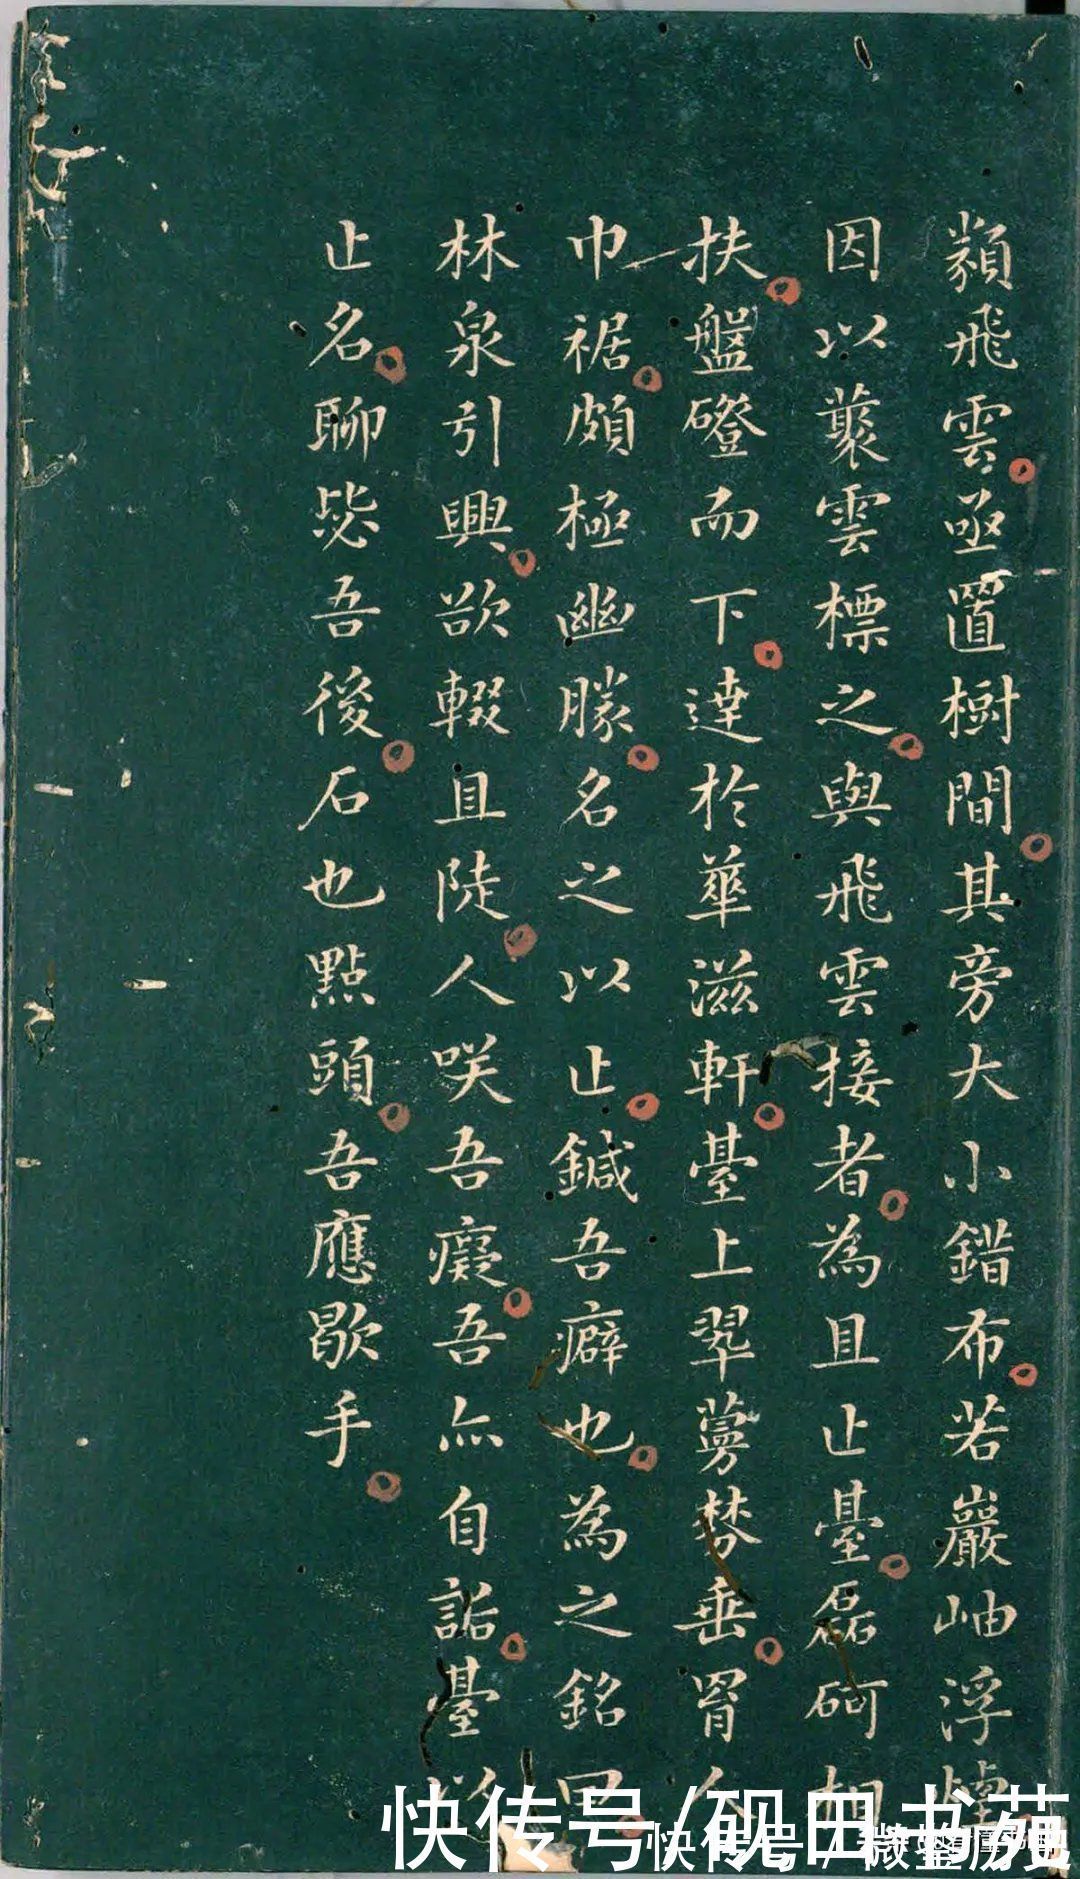 纇飛雲亟置樹間其旁大小錯布若巖岫浮
因以藂雲標之與飛雲接者為且止臺磊砢相
扶盤磴而下達於華滋軒臺上翠蔓棼垂罥人
巾裾頗極幽勝名之以止鍼吾癖也為之銘曰
林泉引興欲輟且陡人咲吾癡吾亦自詬臺以
止名聊毖吾後石也點頭吾應歇手
快传号/砚田书苑
快传号 / 微鉴